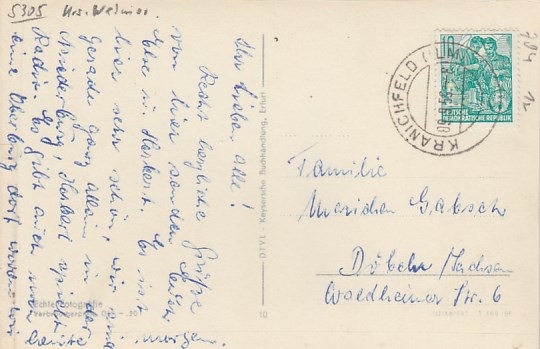 5305 Krs. Weimar.
Ihr Lieben alle!
Recht herzliche Grüße
von hier senden Euch
Else u. Herbert. Es ist
hier sehr schön, wir sind morgen
Gerade ganz allein in der
Niederburg, Herbert spielt
Radio. Es gibt auch noch
eine Oberburg, dort waren wir heute
Echte Fotografie
OTYL - Keysersche Buchhandlung, Erfurt
10
KRANICHFELD (ILM)
10
DEUTSCHE
DEMOKRATISCHE REPUBLIK
704
Familie
Gabsch
Döbeln / Sachsen
Waldheimer Str. 6